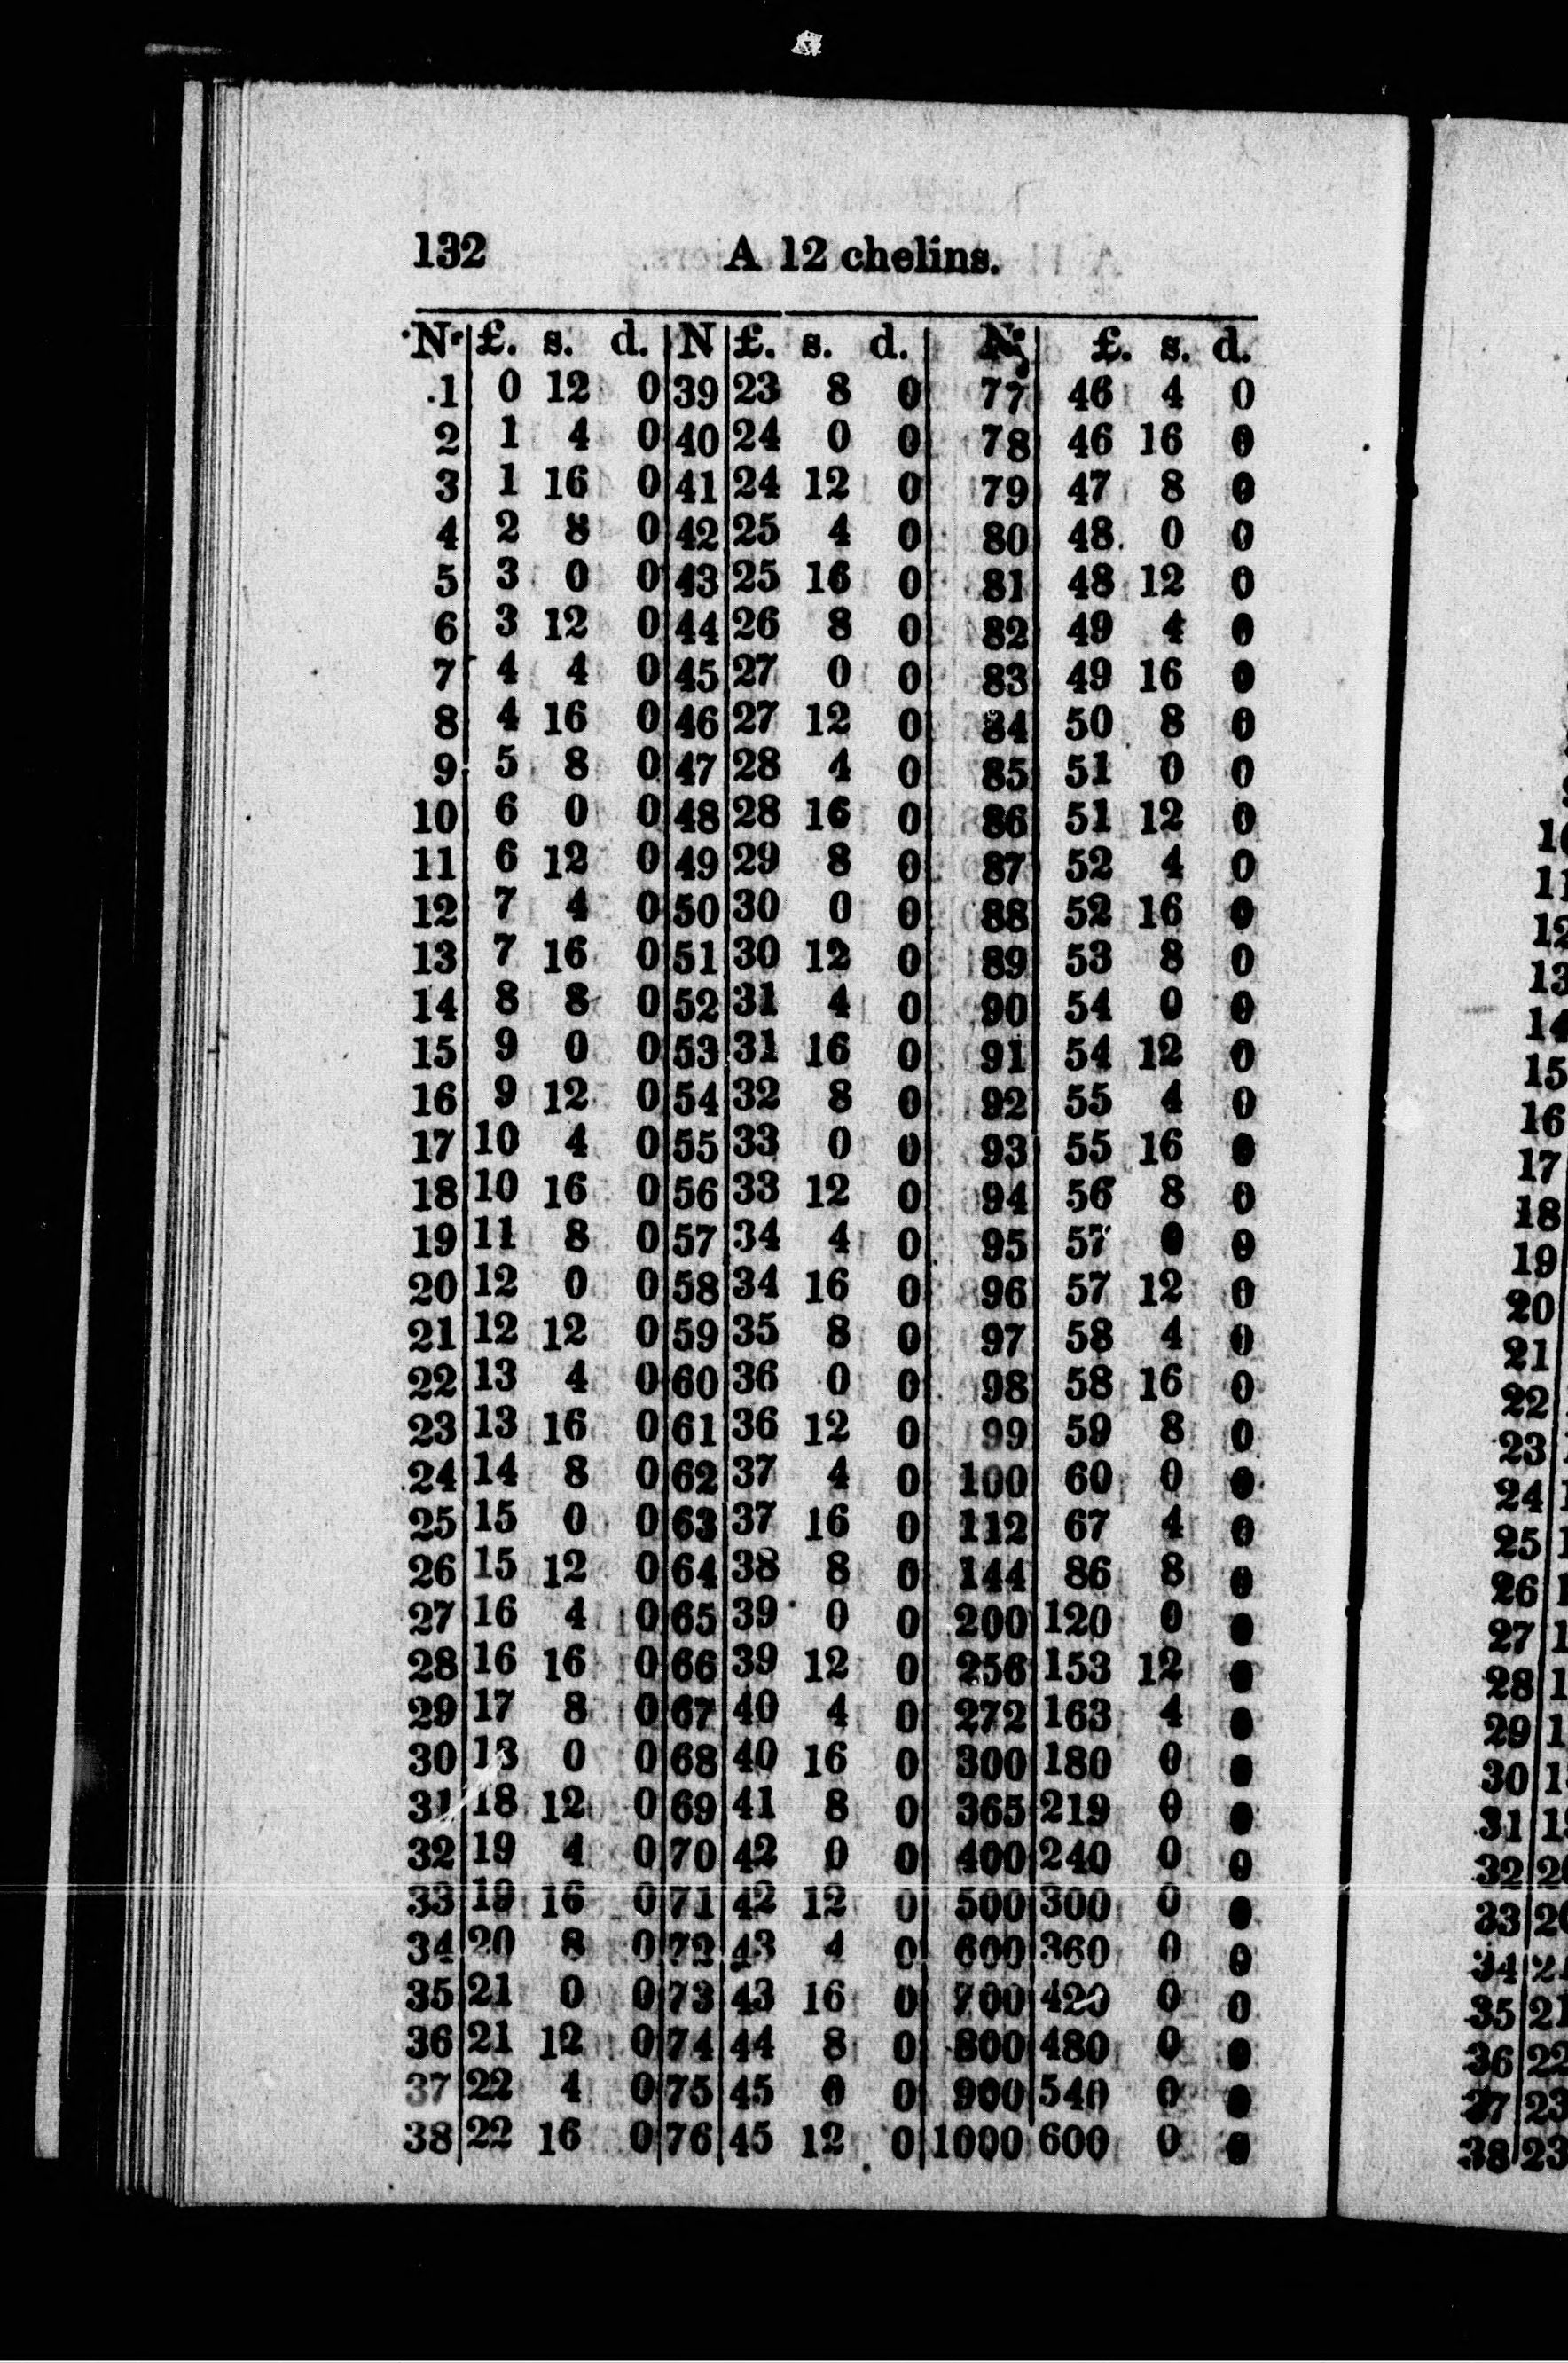 132 A 12 chelins.
N. £. s. d. N £. s. d. N. £. s. d.
1 0 12 0 39 23 8 0 77 46 4 0
2 1 4 0 40 24 0 0 78 46 16 0
3 1 16 0 41 24 12 0 79 47 8 0
4 2 8 0 42 25 4 0 80 48 0 0
5 3 0 0 43 25 16 0 81 48 12 0
6 3 12 0 44 26 8 0 82 49 4 0
7 4 4 0 45 27 0 0 83 49 16 0
8 4 16 0 46 27 12 0 84 50 8 0
9 5 8 0 47 28 4 0 85 51 0 0
10 6 0 0 48 28 16 0 86 51 12 0
11 6 12 0 49 29 8 0 87 52 4 0
12 7 4 0 50 30 0 0 88 52 16 0
13 7 16 0 51 30 12 0 89 53 8 0
14 8 8 0 52 31 4 0 90 54 0 0
15 9 0 0 53 31 16 0 91 54 12 0
16 9 12 0 54 32 8 0 92 55 4 0
17 10 4 0 55 33 0 0 93 55 16 0
18 10 16 0 56 33 12 0 94 56 8 0
19 11 8 0 57 34 4 0 95 57 0 0
20 12 0 0 58 34 16 0 96 57 12 0
21 12 12 0 59 35 8 0 97 58 4 0
22 13 4 0 60 36 0 0 98 58 16 0
23 13 16 0 61 36 12 0 99 59 8 0
24 14 8 0 62 37 4 0 100 60 0 0
25 15 0 0 63 37 16 0 112 67 4 0
26 15 12 0 64 38 8 0 144 86 8 0
27 16 4 0 65 39 0 0 200 120 0 0
28 16 16 0 66 39 12 0 256 153 12 0
29 17 8 0 67 40 4 0 272 163 4 0
30 18 0 0 68 40 16 0 300 180 0 0
31 18 12 0 69 41 8 0 365 219 0 0
32 19 4 0 70 42 0 0 400 240 0 0
33 19 16 0 71 42 12 0 500 300 0 0
34 20 8 0 72 43 4 0 600 360 0 0
35 21 0 0 73 43 16 0 700 420 0 0
36 21 12 0 74 44 8 0 800 480 0 0
37 22 4 0 75 45 0 0 900 540 0 0
38 22 16 0 76 45 12 0 1000 600 0 0
12
13
14
15
16
17
18
19
20
21
22
23
24
25
26
27
28
29
30
31
32
33
34
35 21
36 22
37 23
38 23